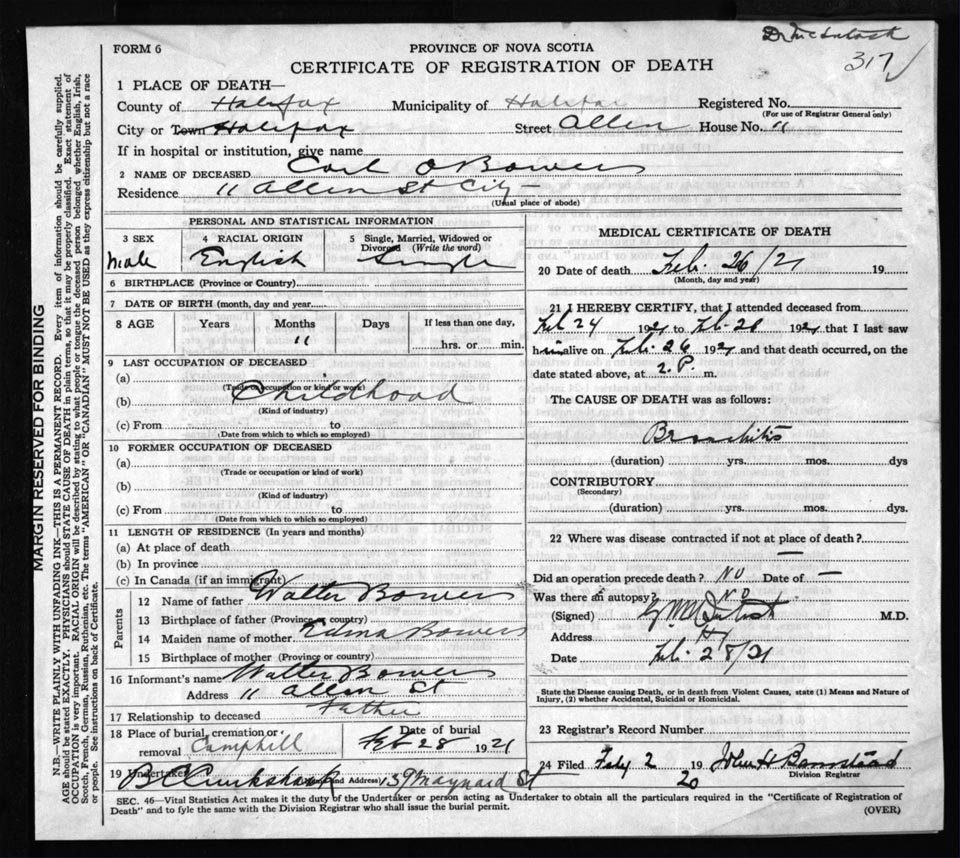 Dr McIntosh
317
FORM 6
PROVINCE OF NOVA SCOTIA
CERTIFICATE OF REGISTRATION OF DEATH
1 PLACE OF DEATH—
County of Halifax Municipality of Halifax Registered No.
(For use of Registrar General only)
City or Town Halifax Street Allen House No. 11
If in hospital or institution, give name
2 NAME OF DECEASED Carl O Bowers
Residence 11 Allen St City -
(Usual place of abode)
PERSONAL AND STATISTICAL INFORMATION
3 SEX 4 RACIAL ORIGIN 5 Single, Married, Widowed or Divorced (Write the word)
Male English Single
6 BIRTHPLACE (Province or Country)
7 DATE OF BIRTH (month, day and year)
8 AGE Years Months Days If less than one day,
11 hrs. or min.
9 LAST OCCUPATION OF DECEASED
(a)
(Trade or occupation or kind of work)
(b) Childhood
(Kind of industry)
(c) From to
(Date from which to which so employed)
10 FORMER OCCUPATION OF DECEASED
(a)
(Trade or occupation or kind of work)
(b)
(Kind of industry)
(c) From to
(Date from which to which so employed)
11 LENGTH OF RESIDENCE (In years and months)
(a) At place of death
(b) In province
(c) In Canada (if an immigrant)
Parents
12 Name of father Walter Bowers
13 Birthplace of father (Province or country)
14 Maiden name of mother Edna Bowers
15 Birthplace of mother (Province or country)
16 Informant's name Walter Bowers
Address 11 Allen St
17 Relationship to deceased Father
18 Place of burial, cremation or removal Camphill
Date of burial Feb 28 1921
19 Undertaker (and Address) 139 Maynard St
MEDICAL CERTIFICATE OF DEATH
20 Date of death Feb. 26/21 19
(Month, day and year)
21 I HEREBY CERTIFY, that I attended deceased from
Feb 24 1921 to Feb. 26 1921 that I last saw
him alive on Feb. 26 1921 and that death occurred, on the
date stated above, at 2. P. m.
The CAUSE OF DEATH was as follows:
Bronchitis
(duration) yrs. mos. dys
CONTRIBUTORY
(Secondary)
(duration) yrs. mos. dys.
22 Where was disease contracted if not at place of death?
—
Did an operation precede death? NO Date of —
Was there an autopsy? NO
(Signed) McIntosh M.D.
Address Hx
Date Feb. 28/21
State the Disease causing Death, or in death from Violent Causes, state (1) Means and Nature of
Injury, (2) whether Accidental, Suicidal or Homicidal.
23 Registrar's Record Number
24 Filed Feby 2 19 20 John H Barnstead
Division Registrar
SEC. 46—Vital Statistics Act makes it the duty of the Undertaker or person acting as Undertaker to obtain all the particulars required in the "Certificate of Registration of
Death" and to fyle the same with the Division Registrar who shall issue the burial permit.
(OVER)
MARGIN RESERVED FOR BINDING
N.B.—WRITE PLAINLY WITH UNFADING INK—THIS IS A PERMANENT RECORD. Every item of information should be carefully supplied.
AGE should be stated EXACTLY. PHYSICIANS should STATE CAUSE OF DEATH in plain terms, so that it may be properly classified. Exact statement of
OCCUPATION is very important. RACIAL ORIGIN will be described by stating to what people or tongue the deceased person belonged whether English, Irish,
Scotch, French, German, Russian, Ruthenian, etc. The terms "AMERICAN" OR "CANADIAN" MUST NOT BE USED as they express citizenship but not a race
or people. See instructions on back of Certificate.